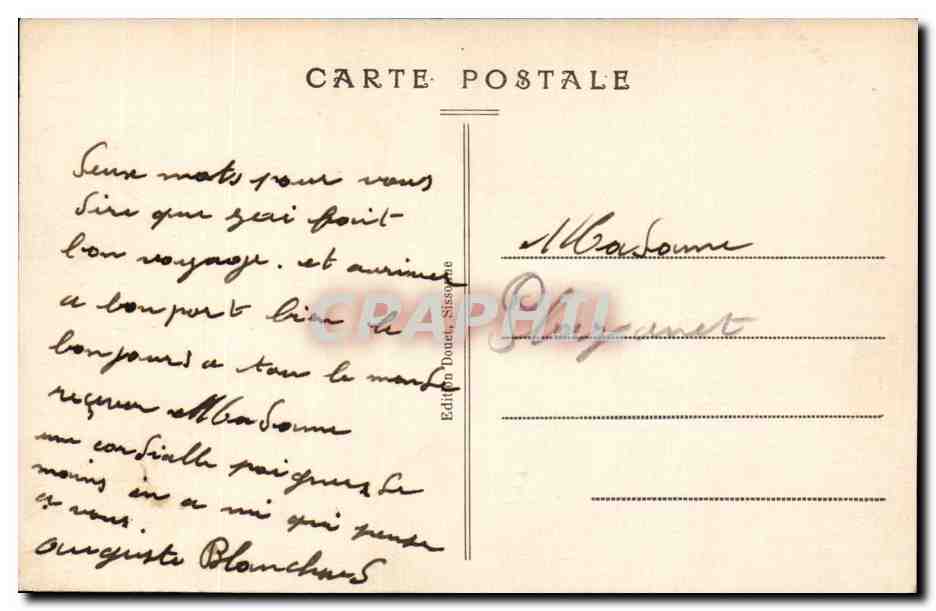 CARTE POSTALE
deux mots pour vous
dire que gai fait
bon voyage. et aurivuer
a bon port bien le
bonjours a tou le monde
reçever Madame
une cordialle poigners de
mains in a mi qui pense
a vous.
auguste Blanchard
Edition Douet, Sissonne
Madame
CPAPHIL